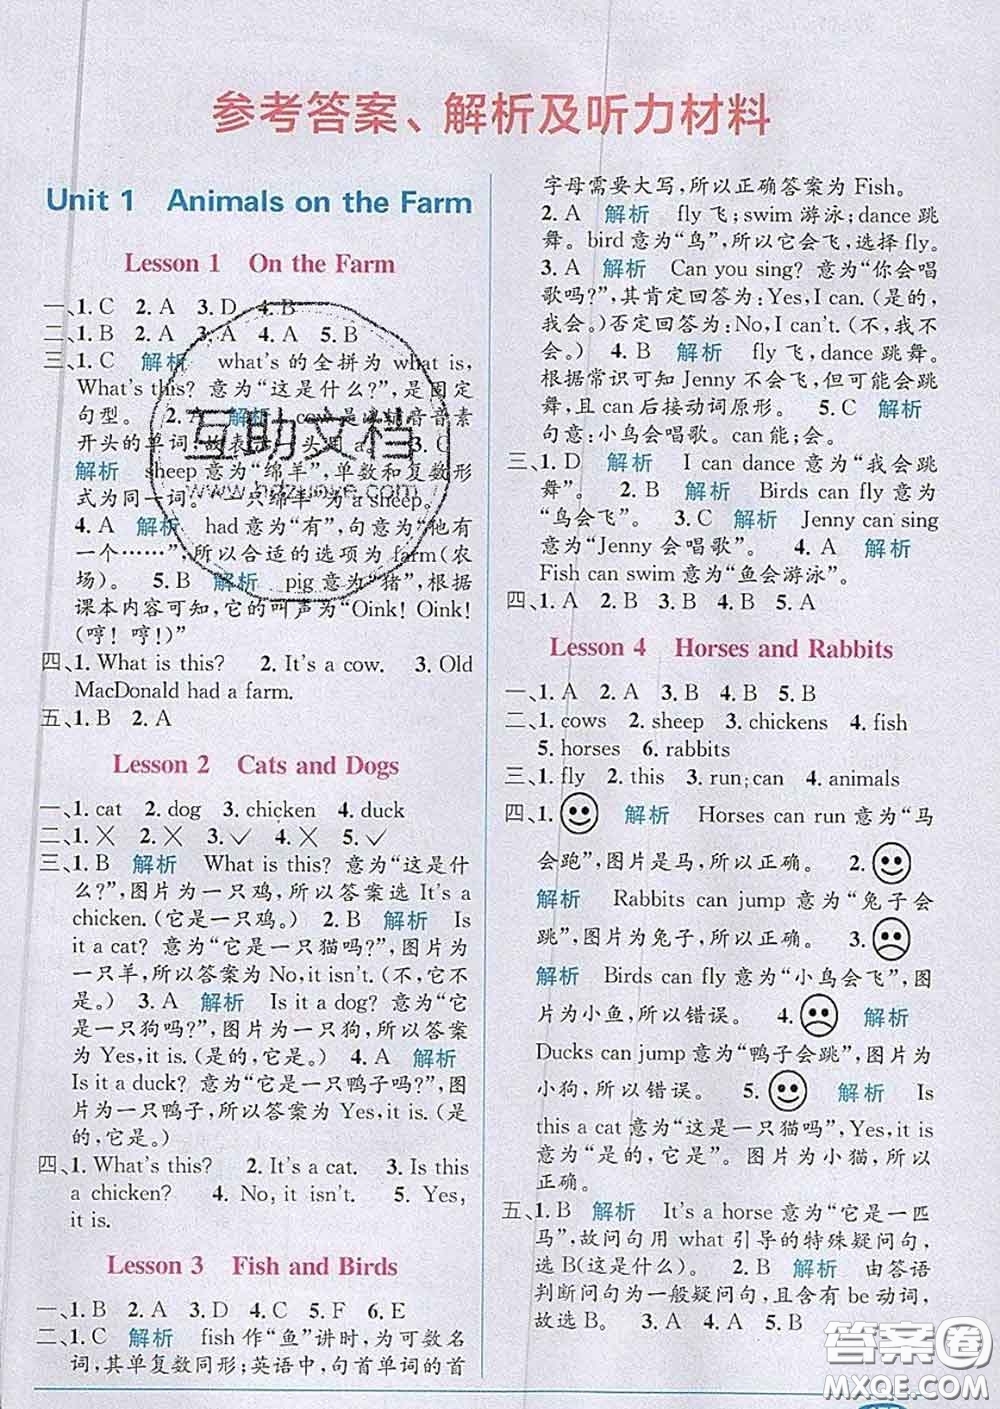 参考答案、解析及听力材料
Unit 1 Animals on the Farm
Lesson 1 On the Farm
一、1. C 2. A 3. D 4. B
二、1. B 2. A 3. A 4. A 5. B
三、1. C 解析 what's的全拼为 what is,
What's this? 意为“这是什么?”,是固定
句型。 2. A 解析 cow是以辅音音素
开头的单词,故表示一头用 a。 3. C
解析 sheep意为“绵羊”,单数和复数形
式为同一词。“一只绵羊”为a sheep。
4. A 解析 had意为“有”,句意为“他有
一个……”,所以合适的选项为farm(农
场)。 5. B 解析 pig意为“猪”,根据
课本内容可知,它的叫声为“Oink! Oink!
(哼! 哼!)”
四、1. What is this? 2. It's a cow. 3. Old
MacDonald had a farm.
五、1. B 2. A
Lesson 2 Cats and Dogs
一、1. cat 2. dog 3. chicken 4. duck
二、1. ✕ 2. ✕ 3. ✓ 4. ✕ 5. ✓
三、1. B 解析 What is this? 意为“这是什
么?”,图片为一只鸡,所以答案选 It's a
chicken.(它是一只鸡。) 2. B 解析 Is
it a cat? 意为“它是一只猫吗?”,图片为
一只羊,所以答案为No,it isn't.(不,它不
是。) 3. A 解析 Is it a dog? 意为“它
是一只狗吗?”,图片为一只狗,所以答案
为 Yes,it is.(是的,它是。) 4. A 解析
Is it a duck? 意为“它是一只鸭子吗?”,图
片为一只鸭子,所以答案为 Yes,it is.(是
的,它是。)
四、1. What's this? 2. It's a cat. 3. Is this
a chicken? 4. No, it isn't. 5. Yes,
it is.
Lesson 3 Fish and Birds
一、1. B 2. A 3. D 4. C 5. F 6. E
二、1. C 解析 fish 作“鱼”讲时,为可数名
词,其单复数同形;英语中,句首单词的首
字母需要大写,所以正确答案为 Fish。
2. A 解析 fly 飞;swim 游泳;dance 跳
舞。bird意为“鸟”,所以它会飞,选择 fly。
3. A 解析 Can you sing? 意为“你会唱
歌吗?”,其肯定回答为:Yes,I can.(是的,
我会。)否定回答为:No,I can't.(不,我不
会。) 4. B 解析 fly 飞,dance 跳舞。
根据常识可知 Jenny 不会飞,但可能会跳
舞,且 can 后接动词原形。 5. C 解析
句意:小鸟会唱歌。can能;会。
三、1. D 解析 I can dance 意为“我会跳
舞”。 2. B 解析 Birds can fly 意
为“鸟会飞”。 3. C 解析 Jenny can sing
意为“Jenny 会唱歌”。 4. A 解析
Fish can swim 意为“鱼会游泳”。
四、1. A 2. B 3. B 4. B 5. A
Lesson 4 Horses and Rabbits
一、1. A 2. A 3. B 4. B 5. B
二、1. cows 2. sheep 3. chickens 4. fish
5. horses 6. rabbits
三、1. fly 2. this 3. run;can 4. animals
四、1. 解析 Horses can run 意为“马
会跑”,图片是马,所以正确。 2.
解析 Rabbits can jump 意为“兔子会
跳”,图片为兔子,所以正确。 3.
解析 Birds can fly 意为“小鸟会飞”,图
片为小鱼,所以错误。 4. 解析
Ducks can jump 意为“鸭子会跳”,图片为
小狗,所以错误。 5. 解析 Is
this a cat 意为“这是一只猫吗”,Yes,it is
意为“是的,它是”。图片为小猫,所以
正确。
五、1. B 解析 It's a horse 意为“它是一匹
马”,故问句用 what 引导的特殊疑问句,
选 B(这是什么)。 2. B 解析 由答语
判断问句为一般疑问句,且含有 be 动词,
故选 B。 3. A 4. A 5. B
互助文档
答案圈
MXQE.COM